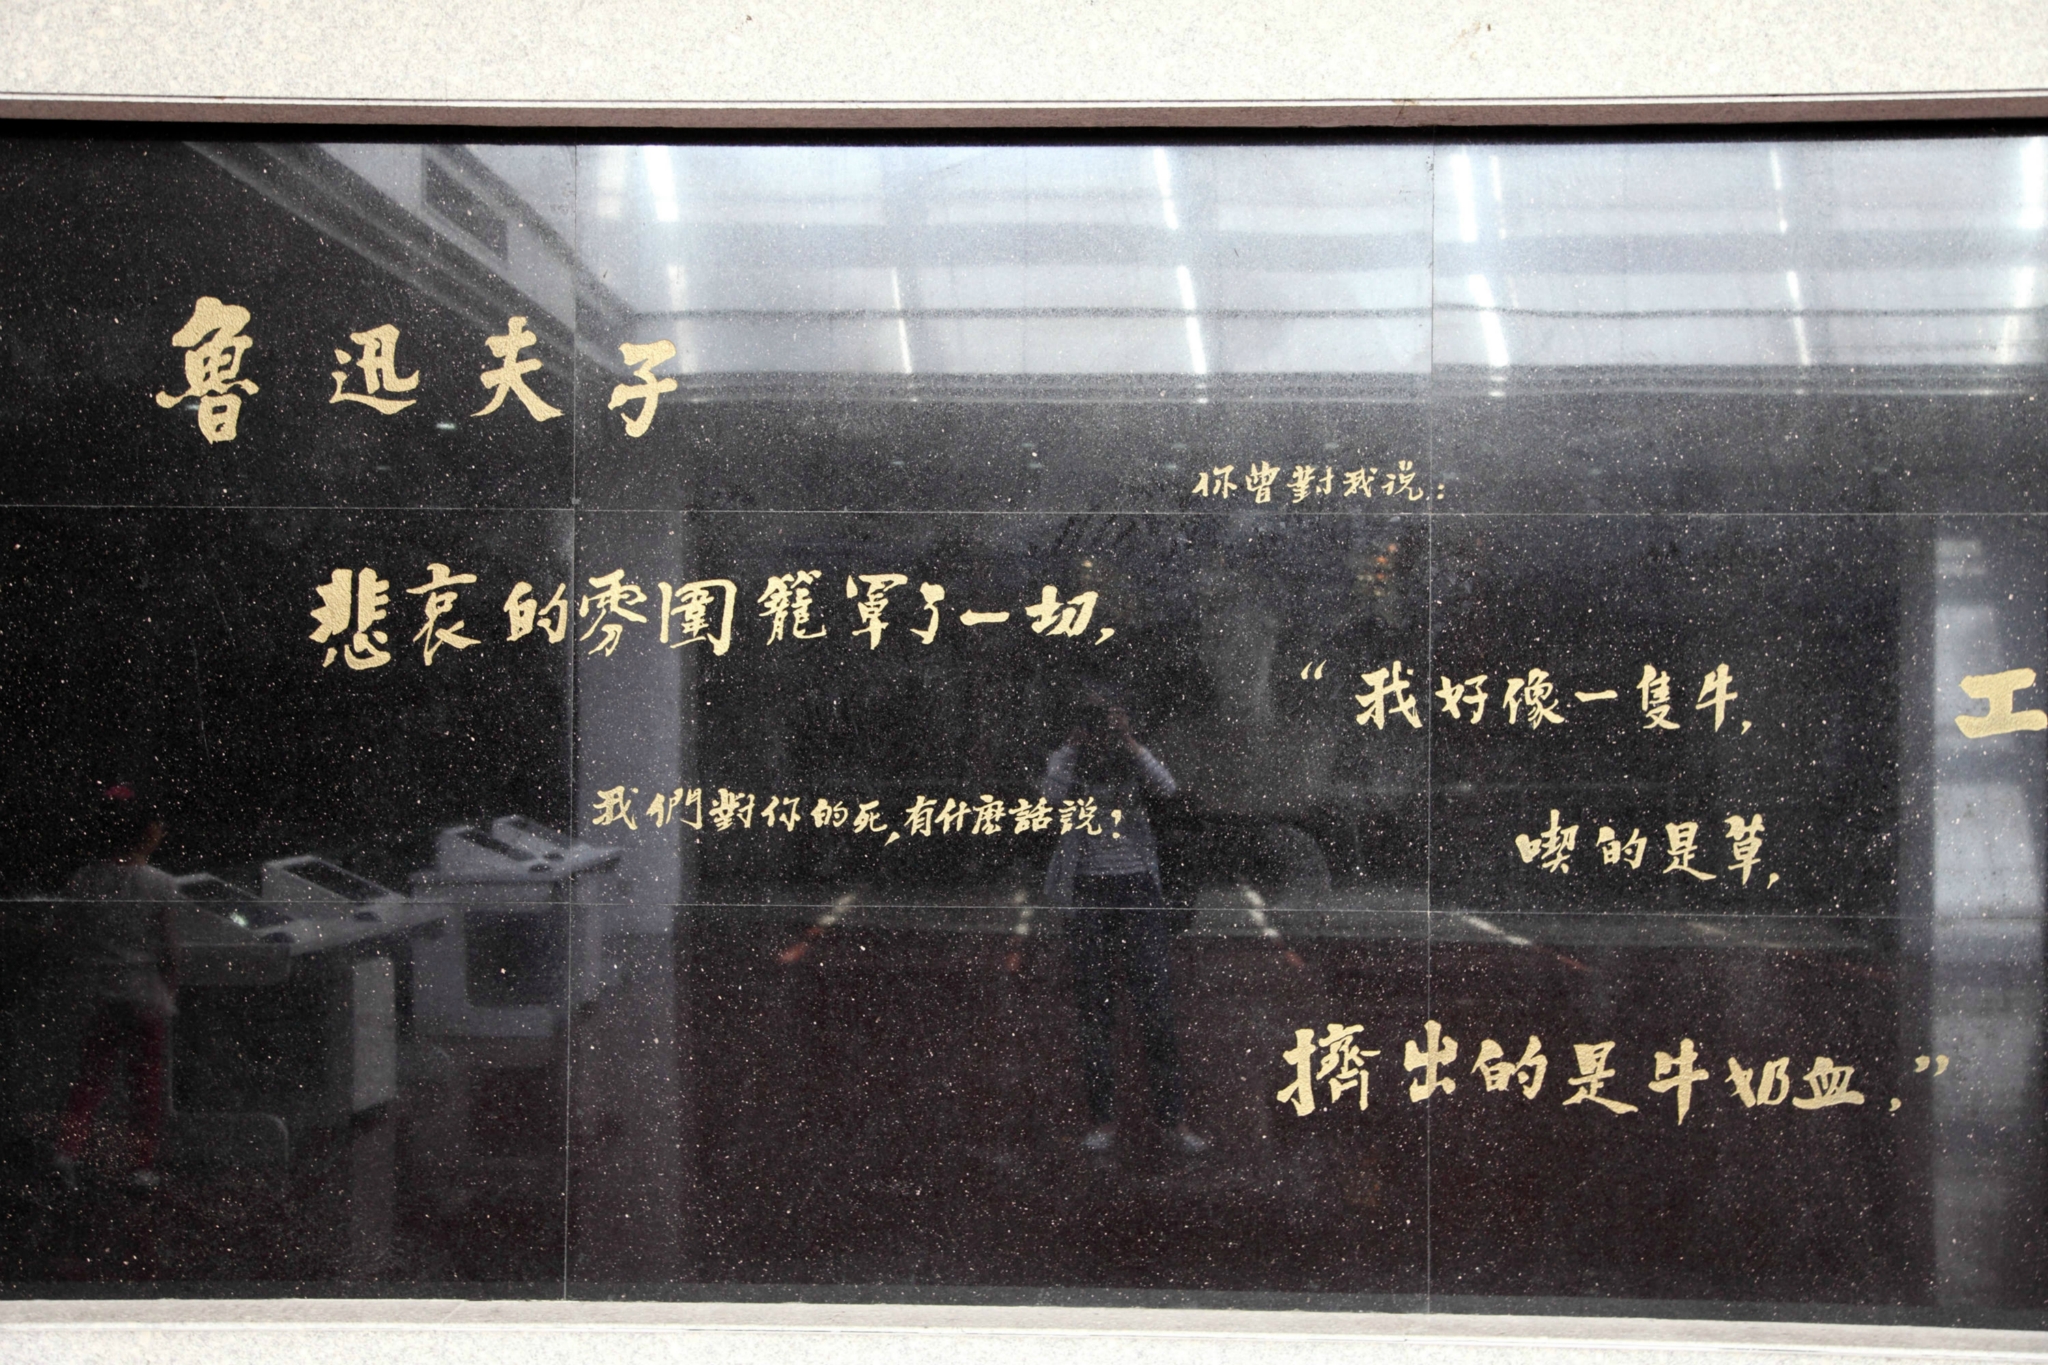 魯迅夫子
悲哀的雰圍籠罩了一切,
我們對你的死,有什麽話說?
你曾對我說:
“我好像一隻牛,
喫的是草,
擠出的是牛奶血,”
工